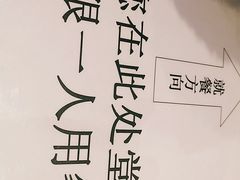 您在此处堂
限一人用
就餐方向